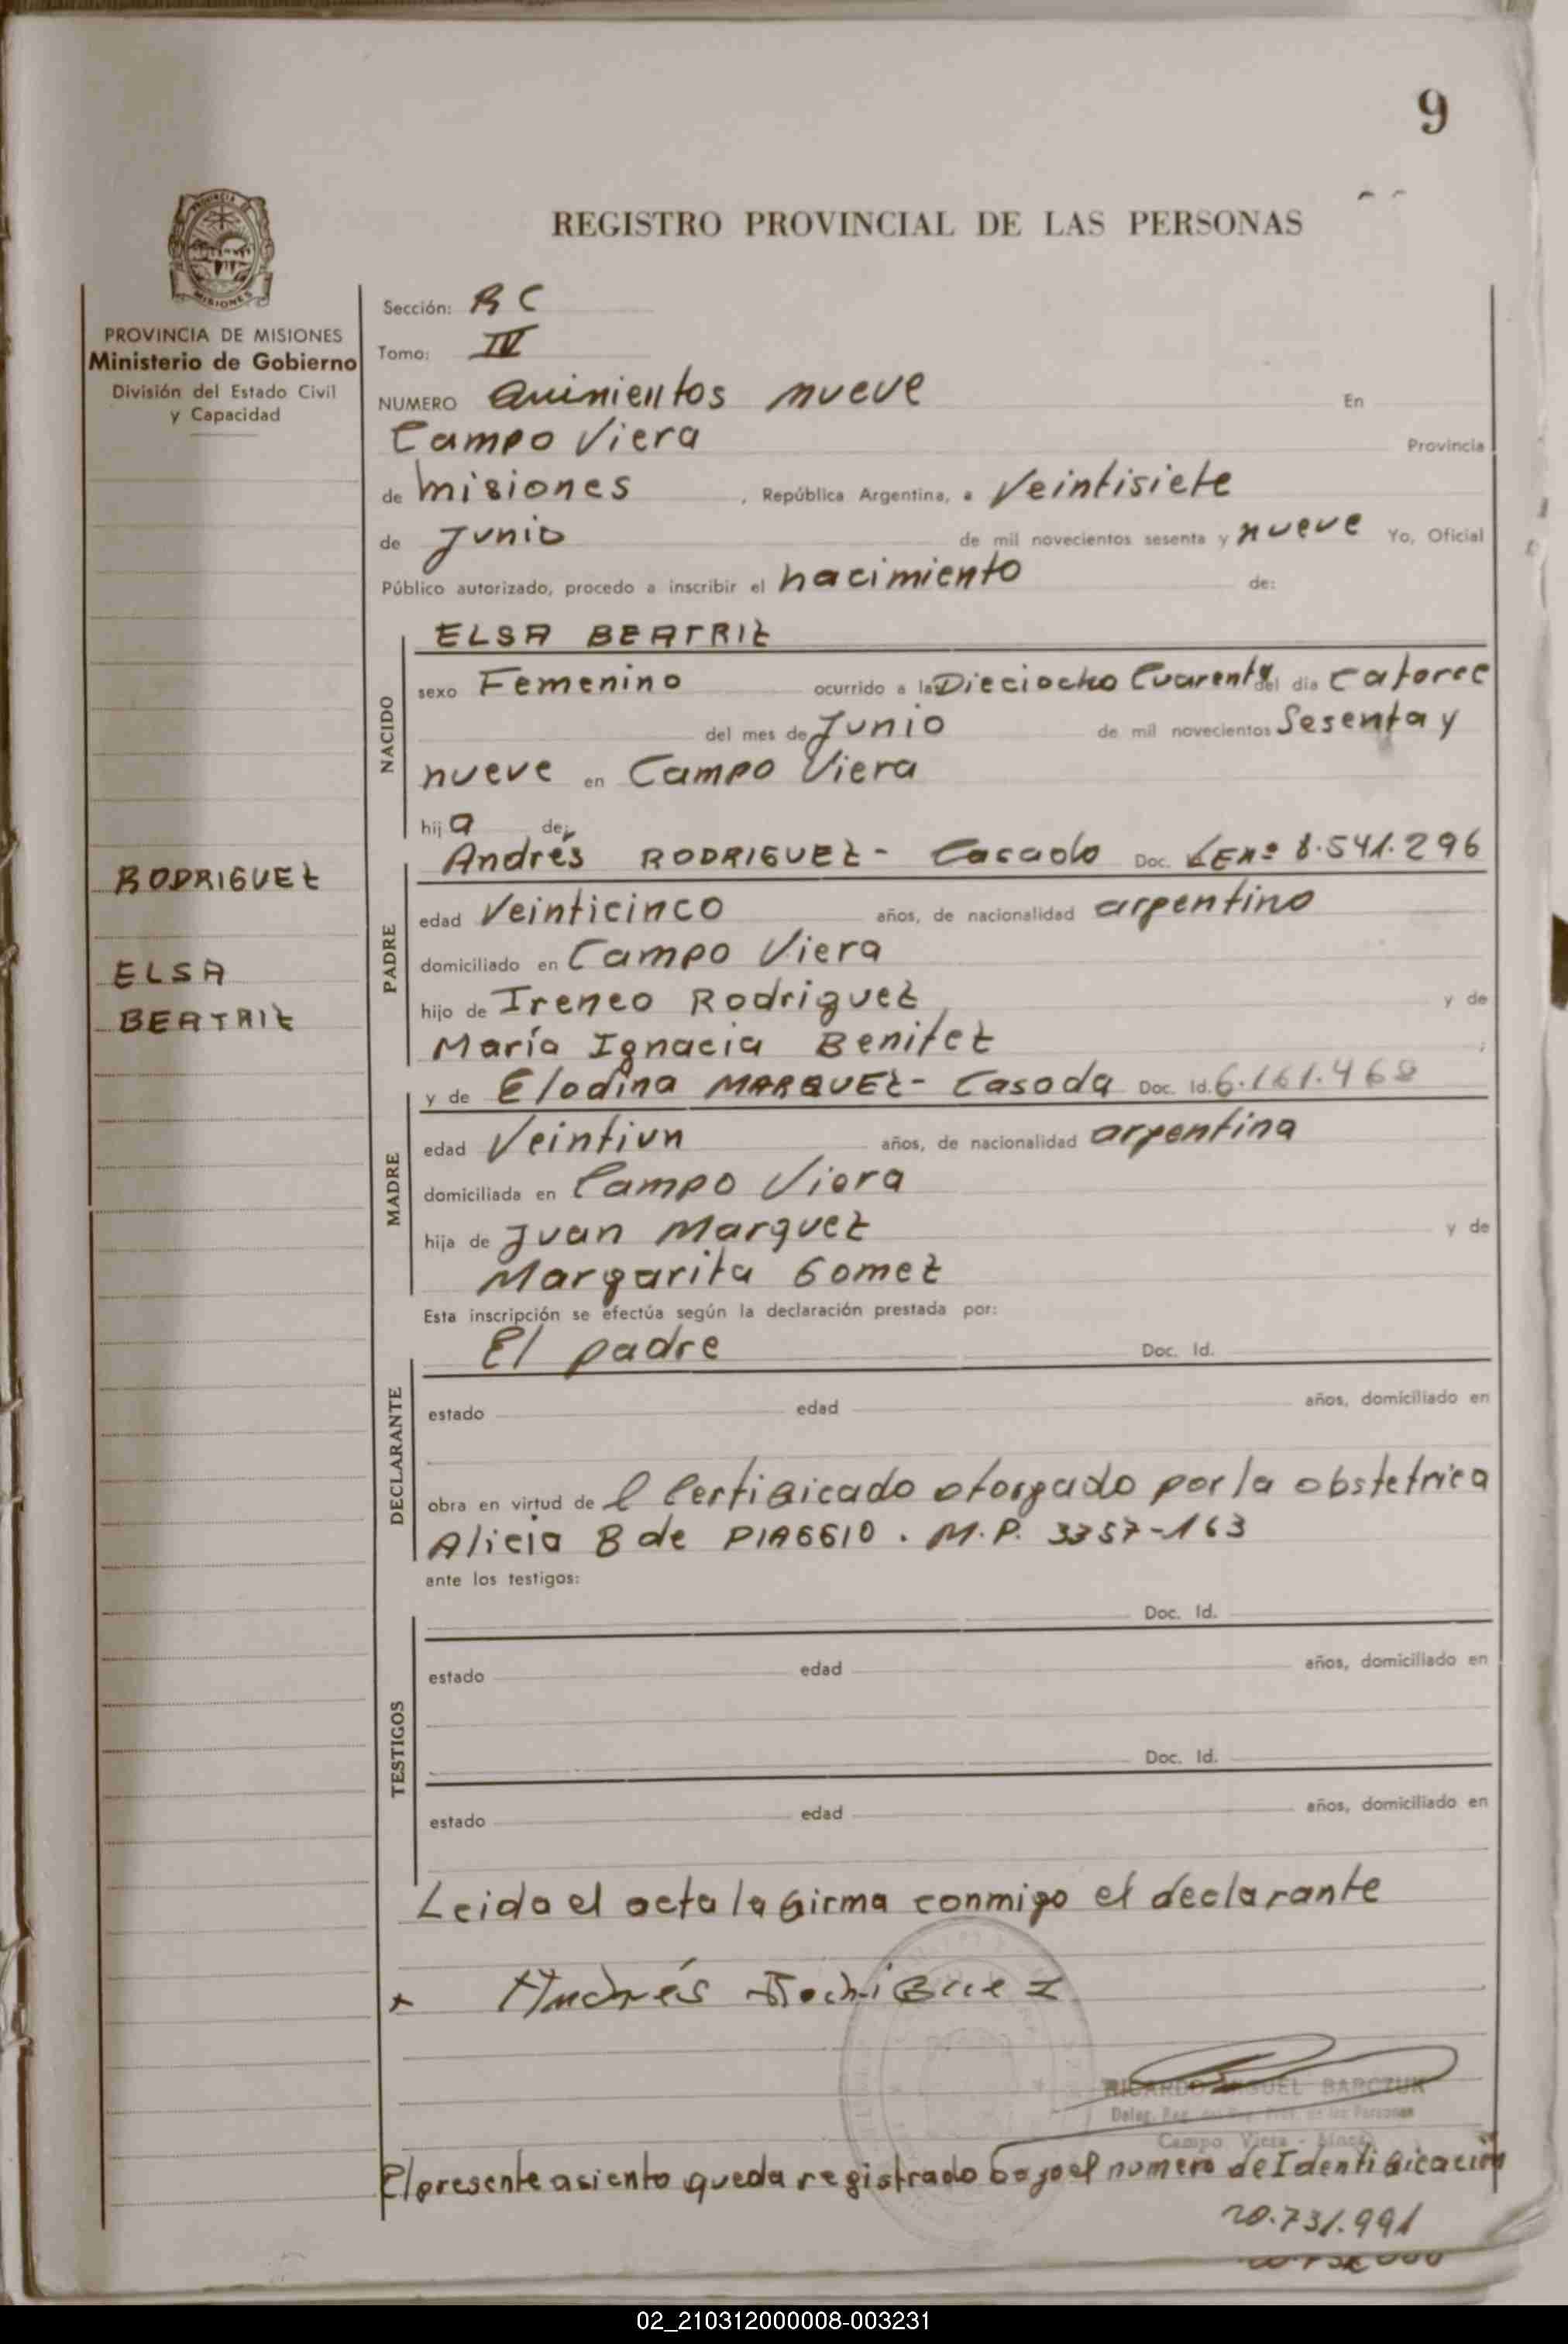 9
REGISTRO PROVINCIAL DE LAS PERSONAS
PROVINCIA DE MISIONES
Ministerio de Gobierno
División del Estado Civil
y Capacidad
Sección: RC
Tomo: IV
NUMERO Quinientos nueve En
Campo Viera Provincia
de misiones , República Argentina, a Veintisiete
de Junio de mil novecientos sesenta y nueve Yo, Oficial
Público autorizado, procedo a inscribir el nacimiento de:
NACIDO
ELSA BEATRIZ
sexo Femenino ocurrido a las Dieciocho Cuarenta del día Catorce
del mes de Junio de mil novecientos Sesenta y
nueve en Campo Viera
hija de:
RODRIGUEZ
ELSA
BEATRIZ
PADRE
Andrés RODRIGUEZ - Casado Doc. LE Nº 8.541.296
edad Veinticinco años, de nacionalidad argentino
domiciliado en Campo Viera
hijo de Ireneo Rodriguez y de
María Ignacia Benitez
MADRE
y de Elodina MARQUEZ - Casada Doc. Id. 6.161.468
edad Veintiun años, de nacionalidad argentina
domiciliada en Campo Viera
hija de Juan Marquez y de
Margarita Gomez
Esta inscripción se efectúa según la declaración prestada por:
DECLARANTE
El padre Doc. Id.
estado edad años, domiciliado en
obra en virtud de l Certificado otorgado por la obstetrica
Alicia B de PIAGGIO. M.P. 3357-163
ante los testigos:
TESTIGOS
Doc. Id.
estado edad años, domiciliado en
Doc. Id.
estado edad años, domiciliado en
Leida el acta la firma conmigo el declarante
x Andrés Rodriguez
RICARDO MIGUEL BARCZUK
Campo Viera - Mnes.
El presente asiento queda registrado bajo el numero de Identificación
20.731.991
02_210312000008-003231